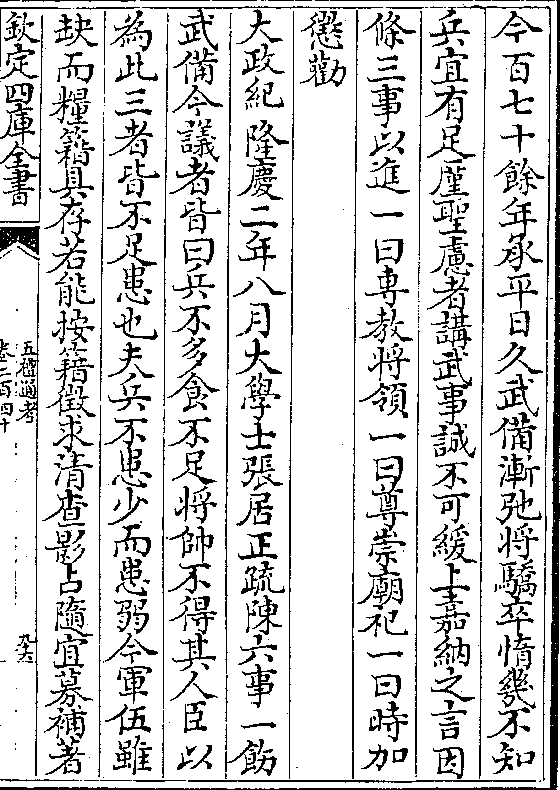 今百七十餘年承平日久武備漸弛將驕卒惰幾不知
兵宜有足廑聖慮者講武事誠不可緩上嘉納之言因
條三事以進一曰専教將領一曰尊崇廟祀一曰時加
懲勸
大政紀隆慶二年八月大學士張居正疏陳六事一飭
武備今議者皆曰兵不多食不足將帥不得其人臣以
為此三者皆不足患也夫兵不患少而患弱今軍伍雖
缺而糧籍具存若能按籍徴求清查影占隨宜募補著
欽定四庫全書
五禮通考
卷二百四十